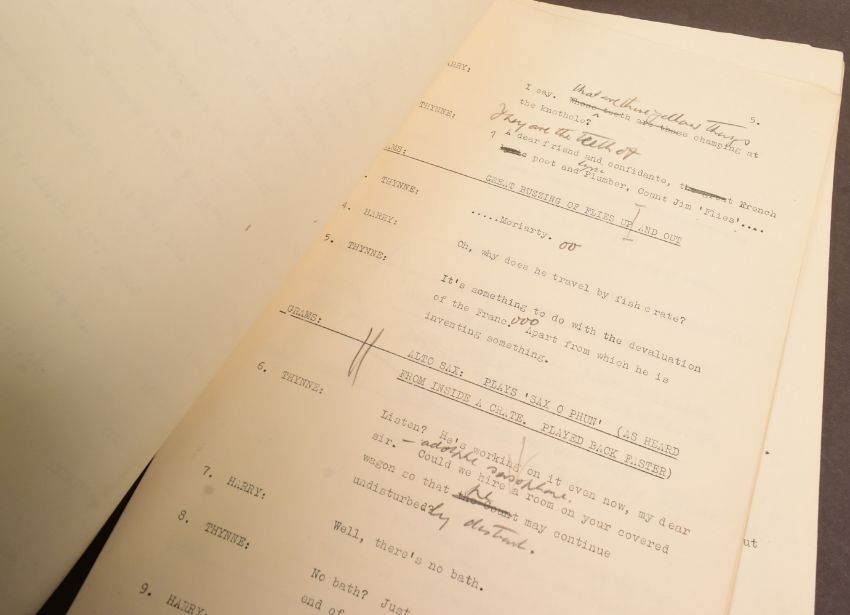 5.
ARRY:
I say. that are those yellow things
Whose teeth are those champing at
the knothole?
They are the teeth of
THYNNE:
a dear friend and confidante, the great French
poet and Plumber, Count Jim 'Flies'....
AMS:
GREAT BUZZING OF FLIES UP AND OUT
THYNNE:
.....Moriarty.
4. HARRY:
Oh, why does he travel by fish crate?
5. THYNNE:
It's something to do with the devaluation
of the Franc. Apart from which he is
inventing something.
GRAMS:
ALTO SAX: PLAYS 'SAX O PHUN' (AS HEARD
FROM INSIDE A CRATE. PLAYED BACK FASTER)
6. THYNNE:
Listen? He's working on it even now, my dear
sir. - adolphe saxophone.
Could we hire a room on your covered
wagon so that he
the Count may continue
undisturbed? by distant.
7. HARRY:
Well, there's no bath.
8. THYNNE:
No bath? Just
end of
9. HARRY:
ut